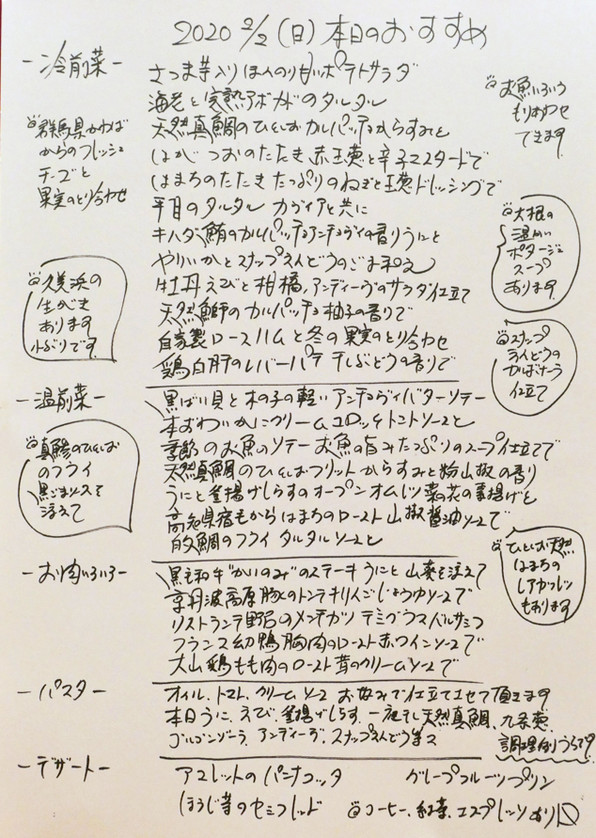 2020 2/2 (日) 本日のおすすめ
-冷前菜-
さつま芋入りほんのり甘いポテトサラダ
海老と完熟アボカドのタルタル
天然真鯛のひとしおカルパッチョからすみと
はがつおのたたき 赤玉葱と辛子マスタードで
はまちのたたき たっぷりのねぎと玉葱ドレッシングで
平目のタルタル カヴィアと共に
キハダ鮪のカルパッチョアンチョヴィの香りうにと
やりいかとスナップえんどうのごま和え
牡丹えびと柑橘、アンディーヴのサラダ仕立て
天然鰤のカルパッチョ 柚子の香りで
自家製ロースハムと冬の果実のとり合わせ
鶏白肝のレバーパテ 干しぶどうの香りで
お魚いろいろ
もりあわせ
できます
群馬県かわば
からのフレッシュ
チーズと
果実のとり合わせ
久美浜の
生がき
あります
小ぶりです
大根の
温かい
ポタージュ
スープ
あります
スナップ
えんどうの
かばなっう
仕立て
-温前菜-
黒ばい貝と木の子の軽いアンチョヴィバターソテー
本ずわいかにクリームコロッケトマトソースと
季節のお魚のソテー お魚の旨みたっぷりのスープ仕立てで
天然真鯛のひとしおフリット からすみと粉山椒の香り
うにと釜揚げしらすのオープンオムレツ 菜の花の素揚げと
高知県宿毛からはまちのロースト 山椒醤油ソースで
的鯛のフライ タルタルソースと
真鯵のひとしお
のフライ
黒ごまソースを
添えて
ひとしお天然
はまちの
レアカツレツ
もあります
-お肉いろいろ-
黒毛和牛"かいのみ"のステーキ うにと山葵を添えて
京丹波高原豚のトンテキりんごじょうゆソースで
リストランテ野呂のメンチカツ デミグラスバルサミコ
フランス幼鴨胸肉のロースト赤ワインソースで
大山鶏もも肉のロースト茸のクリームソースで
-パスタ-
オイル、トマト、クリームソース お好みで仕立てさせて頂きます
本日うに、えび、釜揚げしらす、一夜干し天然真鯛、九条葱、
ゴルゴンゾーラ、アンディーヴ、スナップえんどう等々
調理件りうらです
-デザート-
アマレットのパンナコッタ
グレープフルーツプリン
ほうじ茶のセミフレッド
コーヒー、紅茶、エスプレッソあり〼